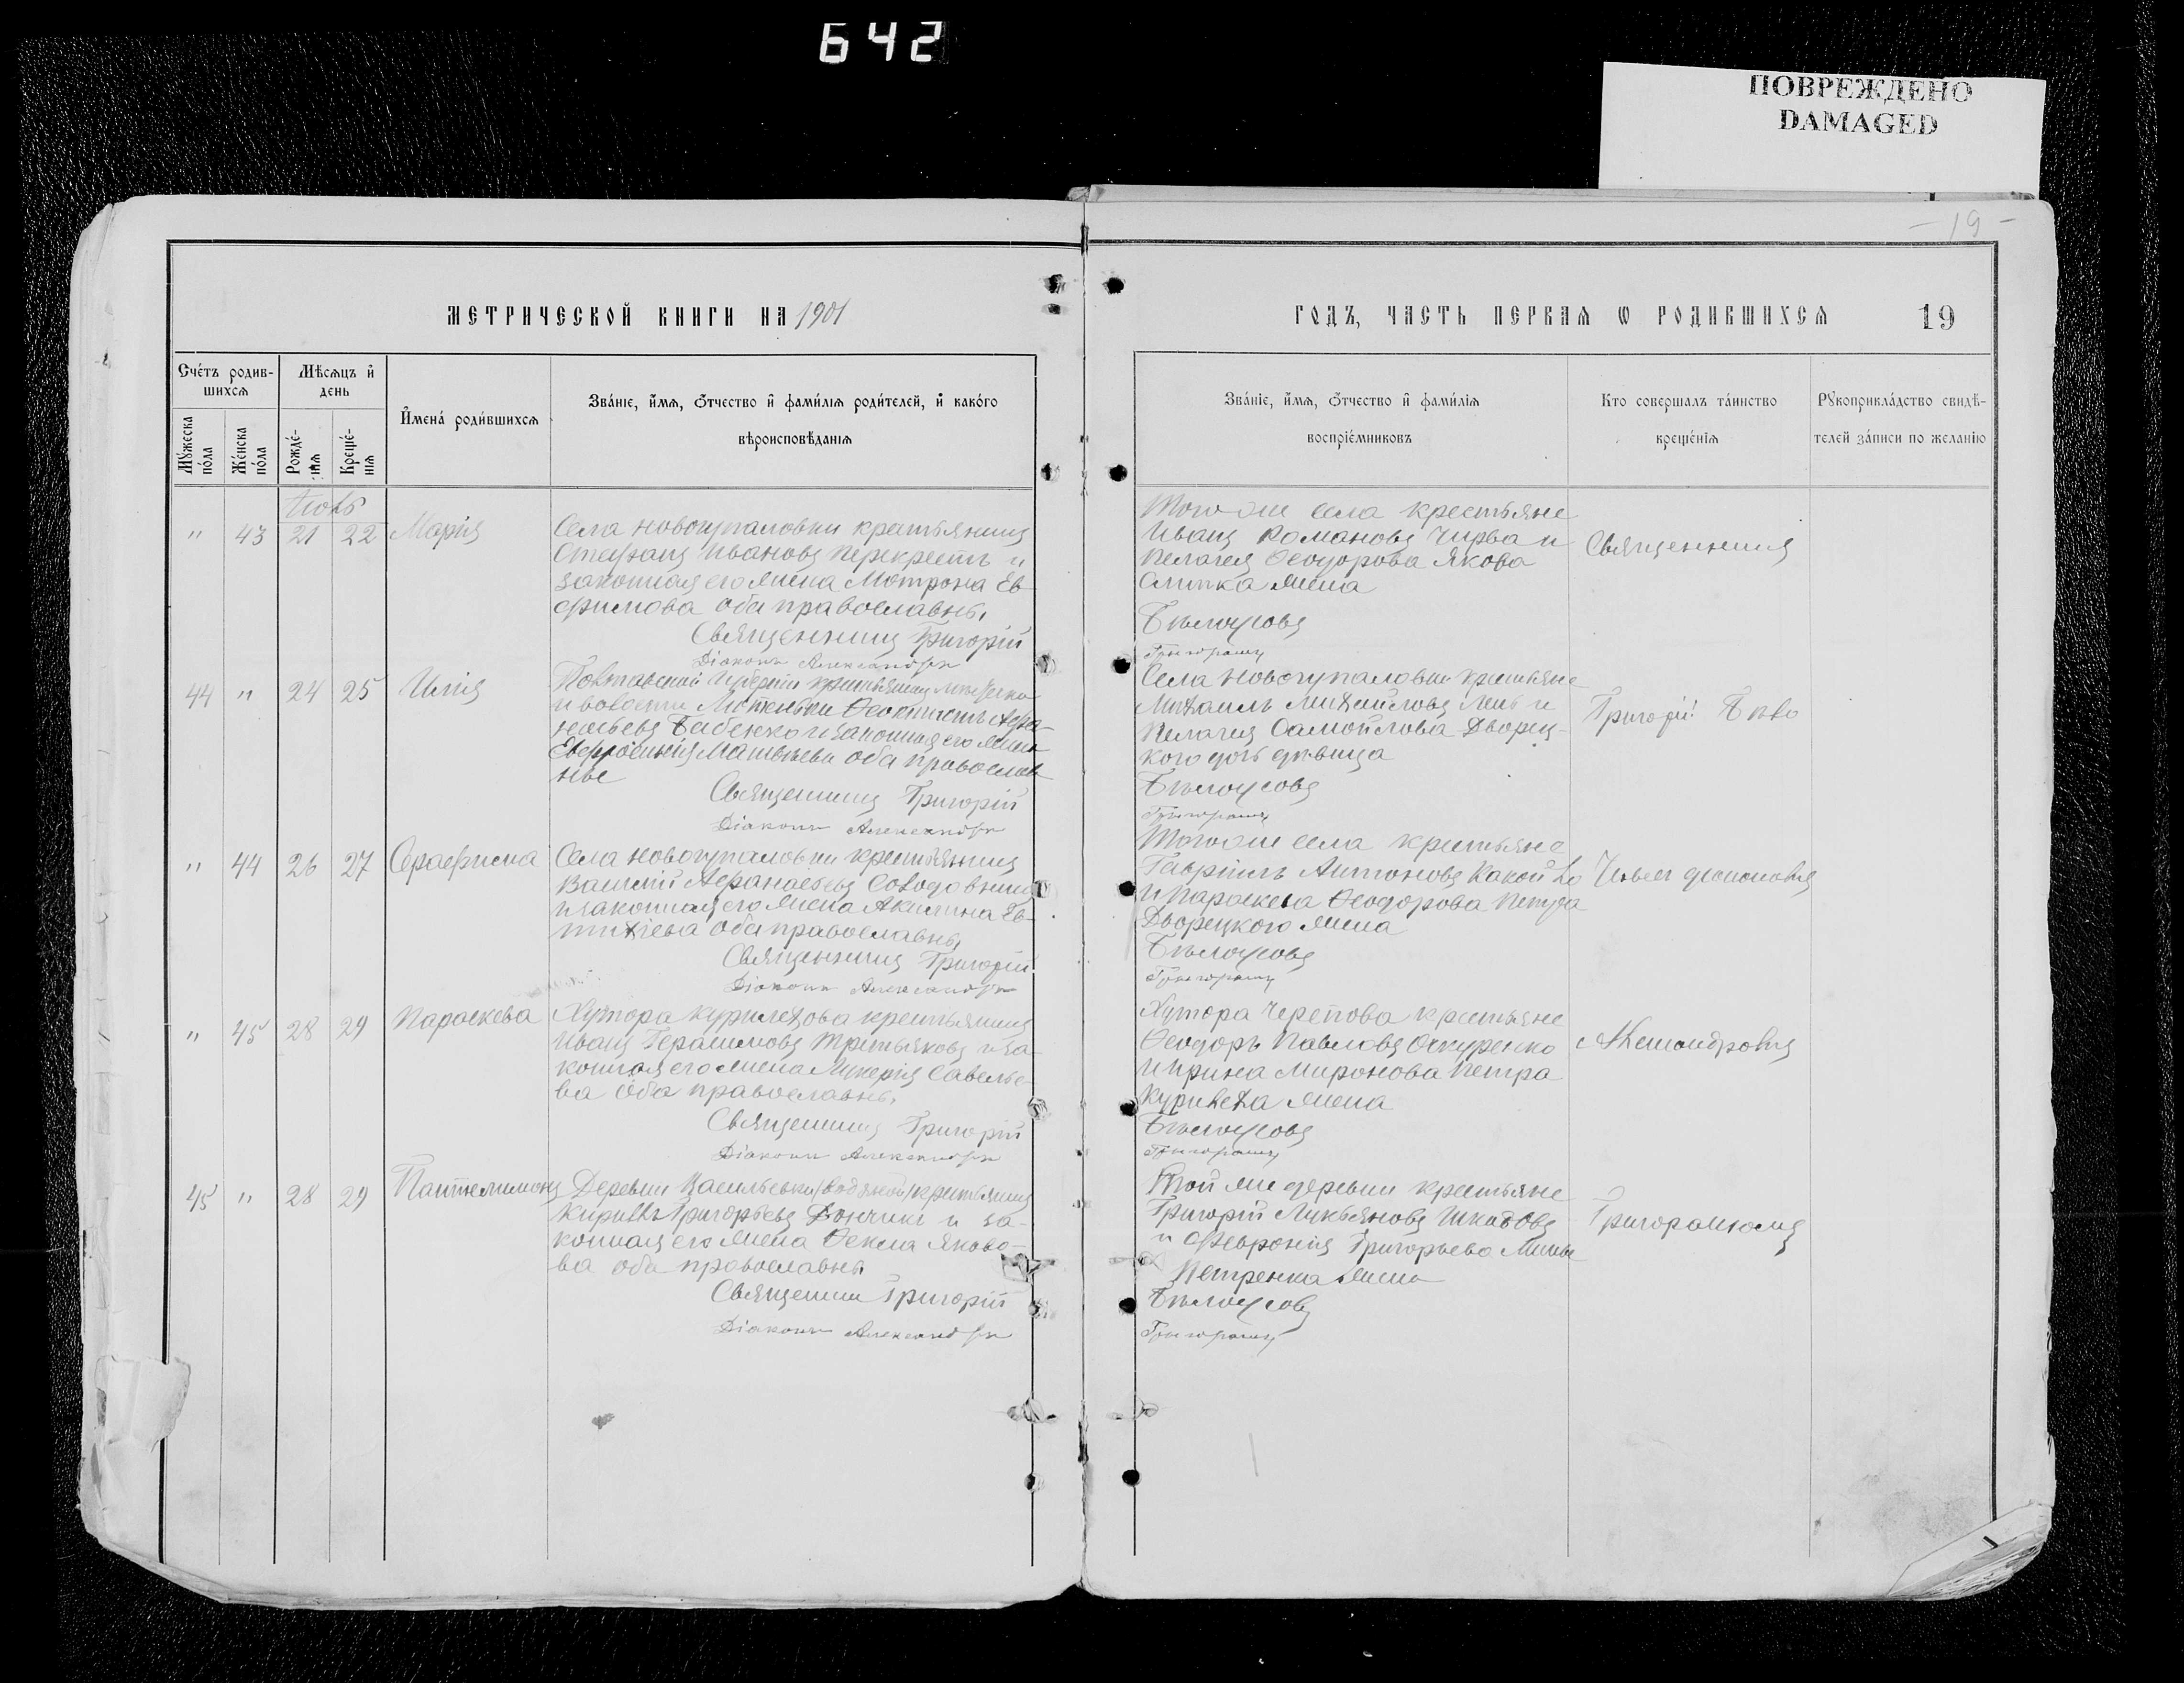 642
ПОВРЕЖДЕНО
DAMAGED
- 19 -
МЕТРИЧЕСКОЙ КНИГИ НА 1901
ГОДЪ, ЧАСТЬ ПЕРВАѦ Ѡ РОДИВШИХСѦ 19
Счетъ родив-
шихсѧ
Мѣсѧцъ и
день
Мужеска
пола
Женска
пола
Рожде-
нїѧ
Креще-
нїѧ
Имена родившихсѧ
Званїе, имѧ, ѿчество и фамилїѧ родителей, и какого
вѣроисповѣданїѧ
Званїе, имѧ, ѿчество и фамилїѧ
воспрїемниковъ
Кто совершалъ таинство
крещенїѧ
Рꙋкоприкладство свидѣ-
телей записи по желанїю
" 43 21 22 Марія
Села Новогупаловки крестьянинъ
Стефанъ Ивановъ Перекрестъ и
законная его жена Мотрона Ев-
фимова оба православны.
Священникъ Григорій
Діаконъ Александръ
Того же села крестьяне
Иванъ Романовъ Чирва и
Пелагея Ѳеодорова Якова
жена
Бѣлоусовъ
Священникъ
44 " 24 25 Илія
Полтавской губерніи крестьянинъ
и волости Ѳеоктистъ Афа-
насьевъ Бабенко и законная его жена
Евфросинія Матвѣева оба православ-
ные
Священникъ Григорій
Діаконъ Александръ
Села Новогупаловки крестьяне
Михаилъ Михайловъ Лень и
Пелагея Самойлова Дворец-
кого дочь дѣвица
Бѣлоусовъ
Григорій Бѣло
" 44 26 27 Серафима
Села Новогупаловки крестьянинъ
Василій Афанасьевъ Солодовникъ
и законная его жена Акилина Ев-
тихіева оба православны.
Священникъ Григорій
Діаконъ Александръ
Того же села крестьяне
Гавріилъ Антоновъ
и Параскева Ѳеодорова
Дворецкого жена
Бѣлоусовъ
" 45 28 29 Параскева
Хутора Курилехова крестьянинъ
Иванъ Герасимовъ Третьяковъ и за-
конная его жена Лукерія Савелье-
ва оба православны.
Священникъ Григорій
Діаконъ Александръ
Хутора Черепова крестьяне
Ѳеодоръ Павловъ Оскуренко
и Ирина Миронова Петра
Курилеха жена
Бѣлоусовъ
45 " 28 29 Пантелимонъ
Деревни Васильевки крестьянинъ
Кириллъ Григорьевъ Дончикъ и за-
конная его жена Ѳекла Яковле-
ва оба православны
Священникъ Григорій
Діаконъ Александръ
Той же деревни крестьяне
Григорій Лукьяновъ
и Февронія Григорьева
Петренка жена
Бѣлоусовъ